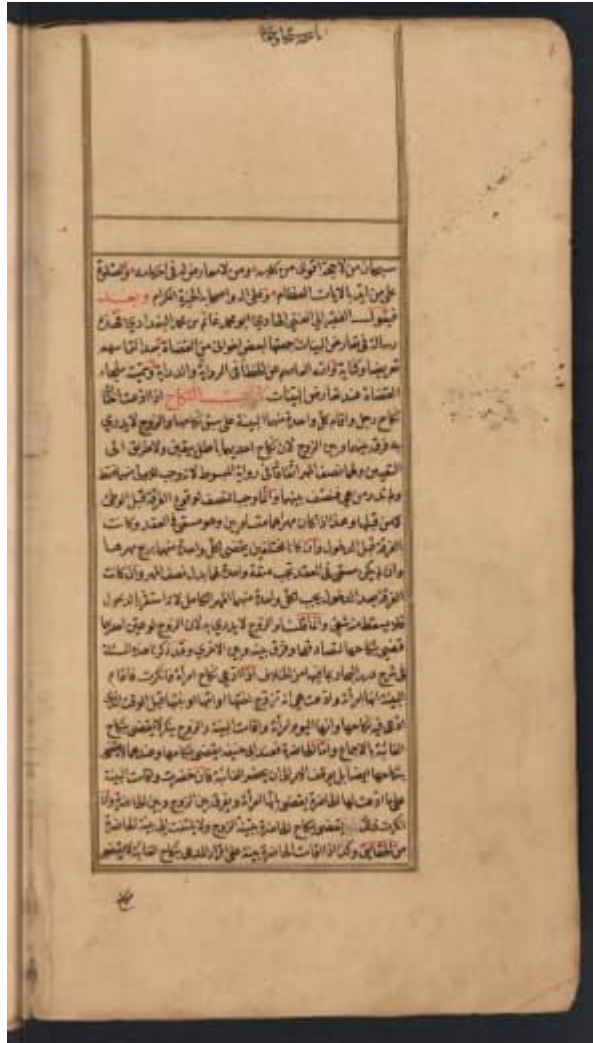 سبحان من لا حجة اقوى من كلامه ومن لا معارض له في احكامه والصلوة
على من ايد بالايات العظام وعلى اله واصحابه الخيرة الكرام وبعد
فيقول الفقير الى الغني الهادي ابو محمد غانم بن محمد البغدادي هذه
رسالة في تعارض البينات جمعتها لبعض اخواني من القضاة
وسميت ملجاء
القضاة عند تعارض البينات كتاب النكاح اذا ادعت اختان
نكاح رجل واقام كل واحدة منهما البينة على سبق نكاحها والزوج لا يدري
به فرق بينهما وبين الزوج لان نكاح احديهما باطل بيقين ولا طريق الى
التعيين ولهما نصف المهر اتفاقا في رواية المبسوط لانه وجب للاولى منهما فقط
ولم ندر من هي فنصف بينهما وانما وجب النصف لوقوع الفرقة قبل الوطئ
لا من قبلها وهذا اذا كان مهراهما متساويين وهو مسمى في العقد وكانت
الفرقة قبل الدخول وان كانا مختلفين يقضى لكل واحدة منهما بربع مهرها
وان لم يكن مسمى في العقد تجب متعة واحدة لهما بدل نصف المهر وان كانت
الفرقة بعد الدخول يجب لكل واحدة منهما المهر الكامل لانه استقر بالدخول
فلا يسقط منه شئ وانما قلنا والزوج لا يدري به لان الزوج لو عين احديهما
قضى بنكاحها لتصادقهما وفرق بينه وبين الاخرى وقد ذكرنا هذه المسئلة
في شرح اذا ادعى نكاح امراة فانكرت فاقام
البينة انها امرأته وادعت هي انه تزوج اختها
ادعى فيه نكاحها وانها اليوم امرأته واقامت البينة والزوج ينكر لا يقضى بنكاح
الغائبة بالاجماع واما الحاضرة فعند ابي حنيفة يقضى بنكاحها وعندهما لا يقضى
بنكاحها ايضا بل يوقف الامر الى ان يحضر الغائبة فان حضرت واقامت البينة
على ما ادعت لها الحاضرة يقضى بانها امرأته ويفرق بين الزوج وبين الحاضرة وان
انكرت ذلك يقضى بنكاح الحاضرة ببينة الزوج ولا يلتفت الى بينة الحاضرة
من الحقائق وكذا اذا اقامت الحاضرة بينة على اقرار المدعي بنكاح الغائبة لا يقضى